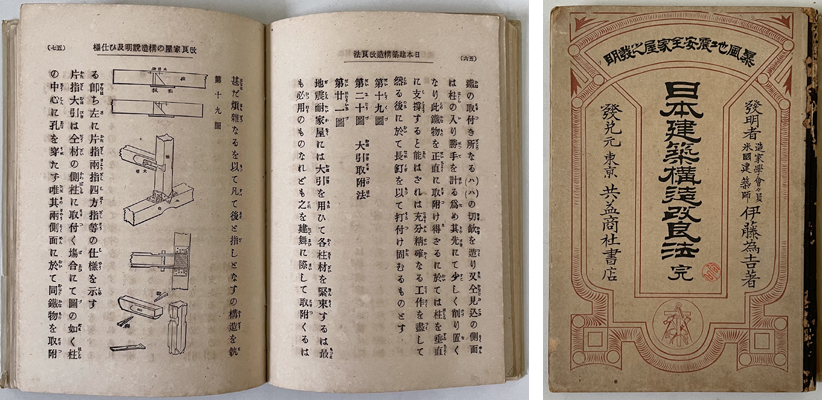 (五六)
日本建築構造改良法
鐵の取付き所なる(ハハ)の切缺を造り又仝見込の側面
は柱の入り勝手を計る爲め其先にて少しく削り置く
なり此鐵物を正直に取附け得さるに於ては柱を垂直
に支撐すると能はされは充分精確なる工作を盡して
然る後に於て長釘を以て打付け固むるものとす
第十九圖
第二十圖 大引取附法
第廿一圖
地震耐家屋には大引を用ひて各柱材を緊束するは最
も必用のものなれども之を建舞に際して取附くるは
改良家屋の構造説明及ひ仕樣
(五七)
甚だ煩雜なるを以て凡て後と指しとなすの構造を執
第十九圖
る卽ち左に片指兩指四方指等の仕樣を示す
片指大引は全材の側柱に取付く塲合にて圖の如く柱
の中心に孔を穿たず唯其兩側面に於て同鐵物を取附
暴風地震安全家屋之發明
發明者 造家學會々員 米國建築師 伊藤為吉著
日本建築構造改良法 完
發兌元 東京 共益商社書店